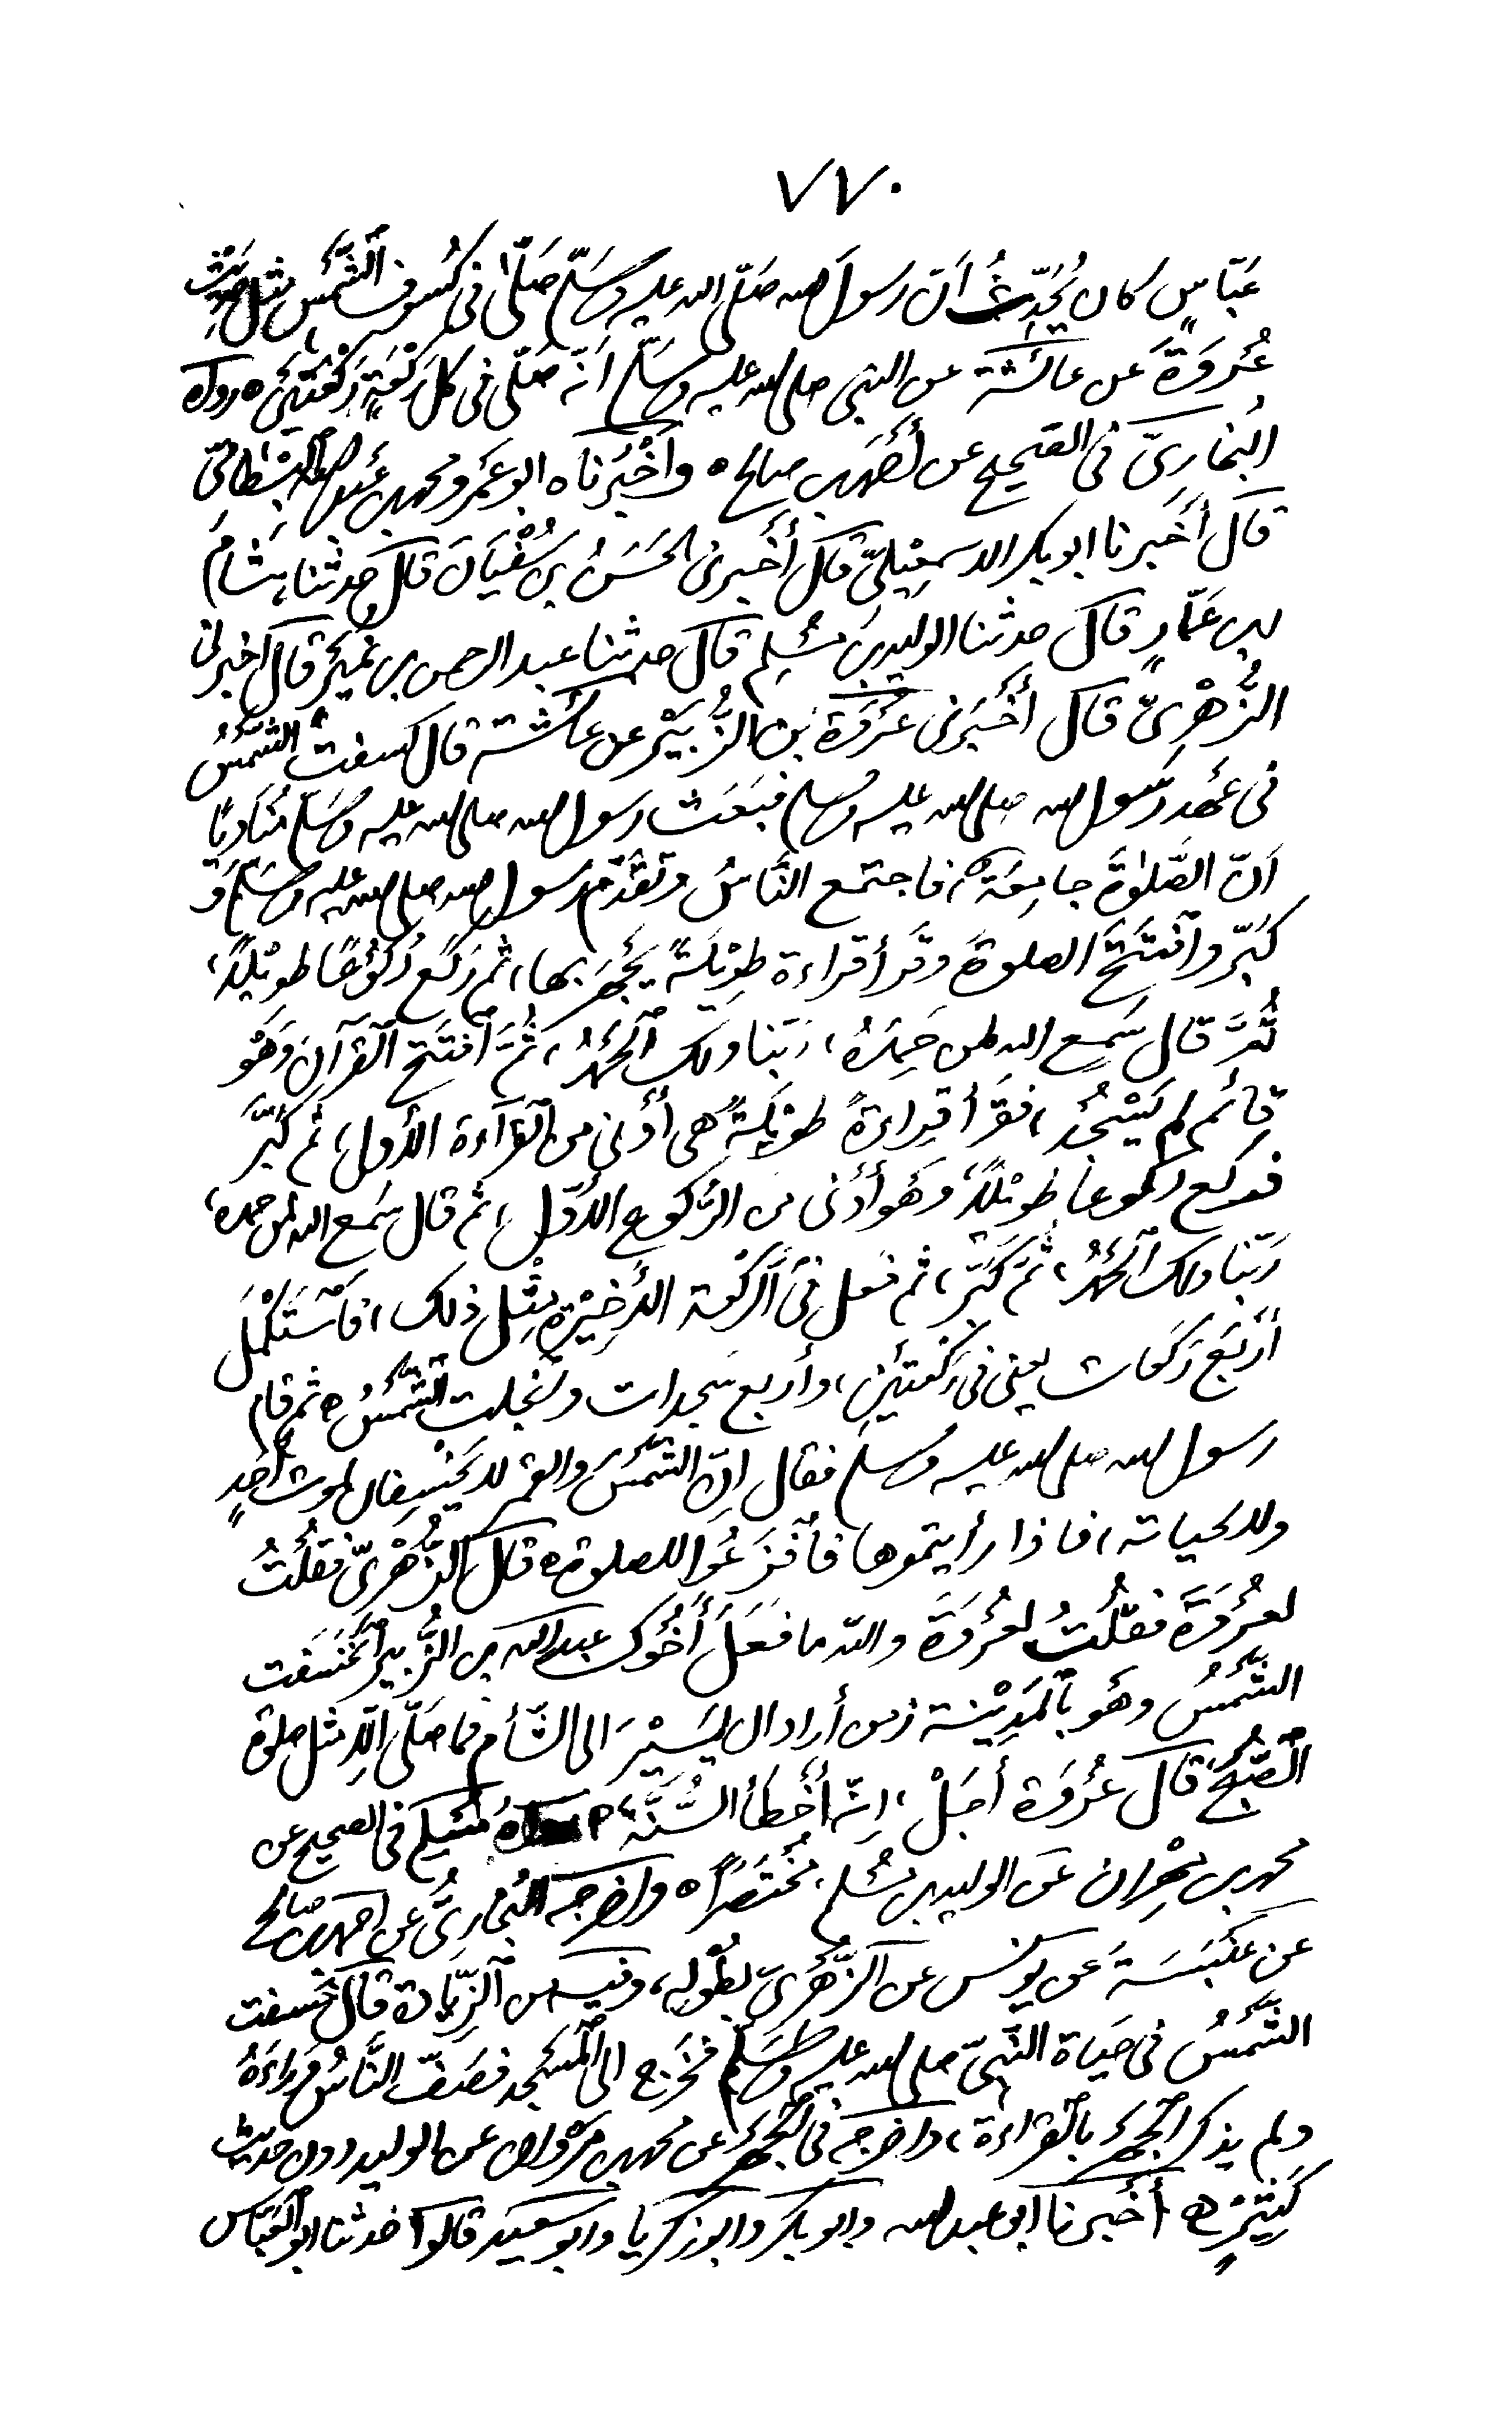 ٧٧٠
عَبّاسٍ كان يُحَدِّثُ أنّ رسولَ الله صَلّى الله عليه وسَلّم صَلّى فى كُسوف الشَّمْس مثل حديث
عُرْوَةَ عن عائشة عن النبى صلى الله عليه وسلّم أَنّه صَلّى فى كل رَكْعَةٍ رَكْعَتَيْن ٥ رواه
البُخارِىّ فى الصّحيح عن أحمد بن صالح ٥ وأَخْبَرناه ابو عَمْرو محمد بن عبد الله البِسْطامِىّ
قال أَخْبَرنا ابو بكر الاسمعِيْلِىّ قال أَخْبَرنى الحَسَنُ بن سُفْيَانَ قال حدثنا هِشَامُ
بن عَمّارٍ قال حدثنا الوليد بن مُسْلِم قال حدثنا عبد الرحمن بن نَمِر قال اخبرنى
الزُّهْرِىّ قال أَخْبَرَنى عُرْوَةُ بن الزُّبَيْر عن عائشة قال كسفت الشّمْسُ
فى عَهْد رَسُول الله صلى الله عليه وسلم فبَعَث رسول الله صلى الله عليه وسَلّم مُنَادِيًا
أنّ الصَّلوٰةَ جامِعَةٌ، فاجتمع النَّاسُ وتَقَدّم رَسول الله صلى الله عليه وسَلّم وَ
كَبّر وٱفْتَتَحَ الصلوةَ وقَرأ قراءة طَوِيْلَةً يَجْهَر بها، ثم رَكَع رُكُوعًا طويْلاً،
ثُمّ قال سَمِع الله لمن حَمِدَهُ، رَبّنا ولك ٱلْحَمْدُ، ثُمّ ٱفْتَتَح القُرآنَ وَهْوَ
قائم لم يَسْجُد، فقَرأ قِراءةً طَوِيْلَةً هى أَدْنى من ٱلْقِراءة الأَولى، ثم كَبّرَ
فركع ركوعا طويْلاً، وهْوَ أَدْنى من الرّكوع الأَوّل، ثم قال سمع الله لمن حمده،
رَبّنا ولك ٱلْحَمْدُ، ثمّ كَبّر، ثم فعل فى الرَّكْعة الأَخِيْرة مِثْل ذلك، فٱسْتَكْمَل
أَرْبَعَ رَكَعات يعنى فى رَكْعَتَيْن، وأربع سَجدات وٱنجلت الشّمْسُ ٥ ثم قام
رسول الله صلى الله عليه وسلم فقال اِنّ الشّمْسَ والقمر لا يَخْسِفان لموت أَحَدٍ
ولا لحياته، فاذا رأيتموها فٱفْزَعُوا للصلوة ٥ قال الزُّهْرِىّ فقُلْتُ
لعُرْوَةَ فقُلْتُ لعُرْوَةَ والله ما فعَلَ أَخُوْك عبد الله بن الزُّبير ٱنْخَسَفَت
الشّمْسُ وهْو بٱلمَدِيْنة زمن أراد ان يَسِيْرَ الى الشّأم فما صَلّى إلاّ مثل صلوة
الصّبْحِ، قال عُرْوَة أَجَلْ، اِنّه أَخْطأ السُّنَّةَ ٥ رواهُ مُسْلِم فى الصحيح عن
محمد بن مِهْران عن الوليد بن مُسْلم مُخْتَصَرًا ٥ واخرجه البُخارِىُّ عن احمد بن صالح
عن عَنْبَسَةَ عن يونس عن الزُّهْرىّ بطُوْلِه، وفيه من ٱلزِّيادة قال خسفت
الشّمْسُ فى حَياة النَّبِىّ صلى الله عليه وسَلّم فخَرَج الى المَسْجِد فصَفّ النَّاسُ وَراءَهُ
ولم يذكر ٱلجَهْر بٱلقِراءة، واخرجه فى ٱلجَهْر عن محمد بن مِهْران عن الوليد دون حديث
كَثِيْرٍ ٥ أَخْبَرنا ابو عبد الله وابو بكر وابو زكريا وابو سَعِيْد قالوا حدثنا ابو العَبّاس